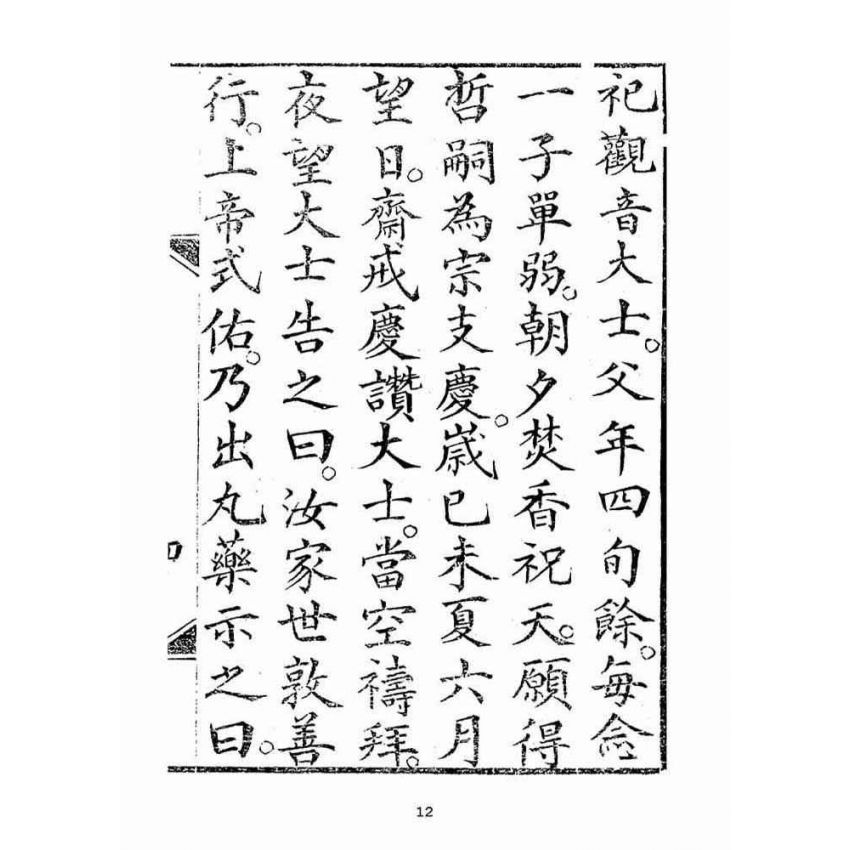 祀觀音大士。父年四旬餘。每念
一子單弱。朝夕焚香祝天。願得
哲嗣為宗支慶。歲己未夏六月
望日。齋戒慶讚大士。當空禱拜。
夜望大士告之曰。汝家世敦善
行。上帝式佑。乃出丸藥示之曰。
12